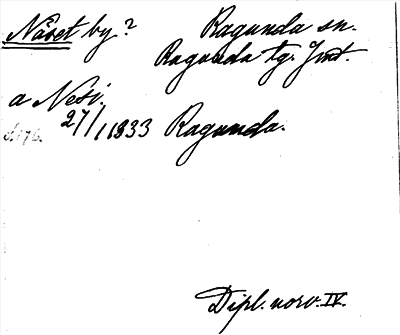 Näset by? Ragunda sn.
Ragunda tg. Jmt.
a Nesi.
27/1 1333 Ragunda.
s.176.
Dipl. norv. IV.